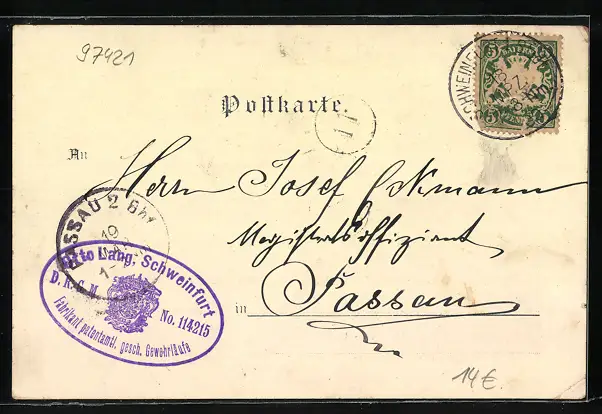 97421
SCHWEINF
5 BAYERN 5
Postkarte.
11
An
Herrn Josef Eckmann
Magistratsoffiziant
in Passau
PASSAU 2 Bhf
19
MAR
Otto Lang, Schweinfurt
D. R. G. M. No. 114215
Fabrikant patentamtl. gesch. Gewehrläufe
14€.